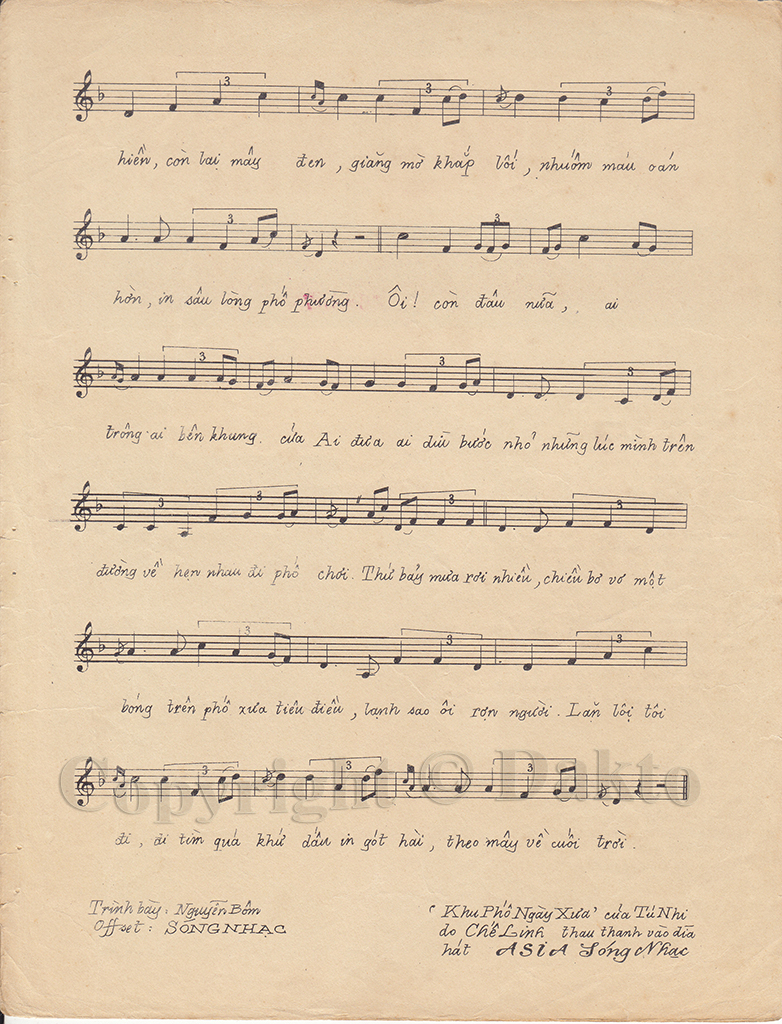 hiền, còn lại mây đen, giăng mờ khắp lối, nhuốm máu oán
hờn, in sâu lòng phố phường. Ôi! còn đâu nữa, ai
trông ai bên khung cửa Ai đưa ai dìu bước nhỏ những lúc mình trên
đường về hẹn nhau đi phố chơi. Thứ bảy mưa rơi nhiều, chiều bơ vơ một
bóng trên phố xưa tiêu điều, lạnh sao ôi rợn người. Lặn lội tôi
đi, đi tìm quá khứ dấu in gót hài, theo mây về cuối trời.
Copyright © Dakto
Trình bày: Nguyễn Bôn
Offset: SÓNGNHẠC
"Khu Phố Ngày Xưa" của Tú Nhi
do Chế Linh thau thanh vào dĩa
hát ASIA Sóng Nhạc